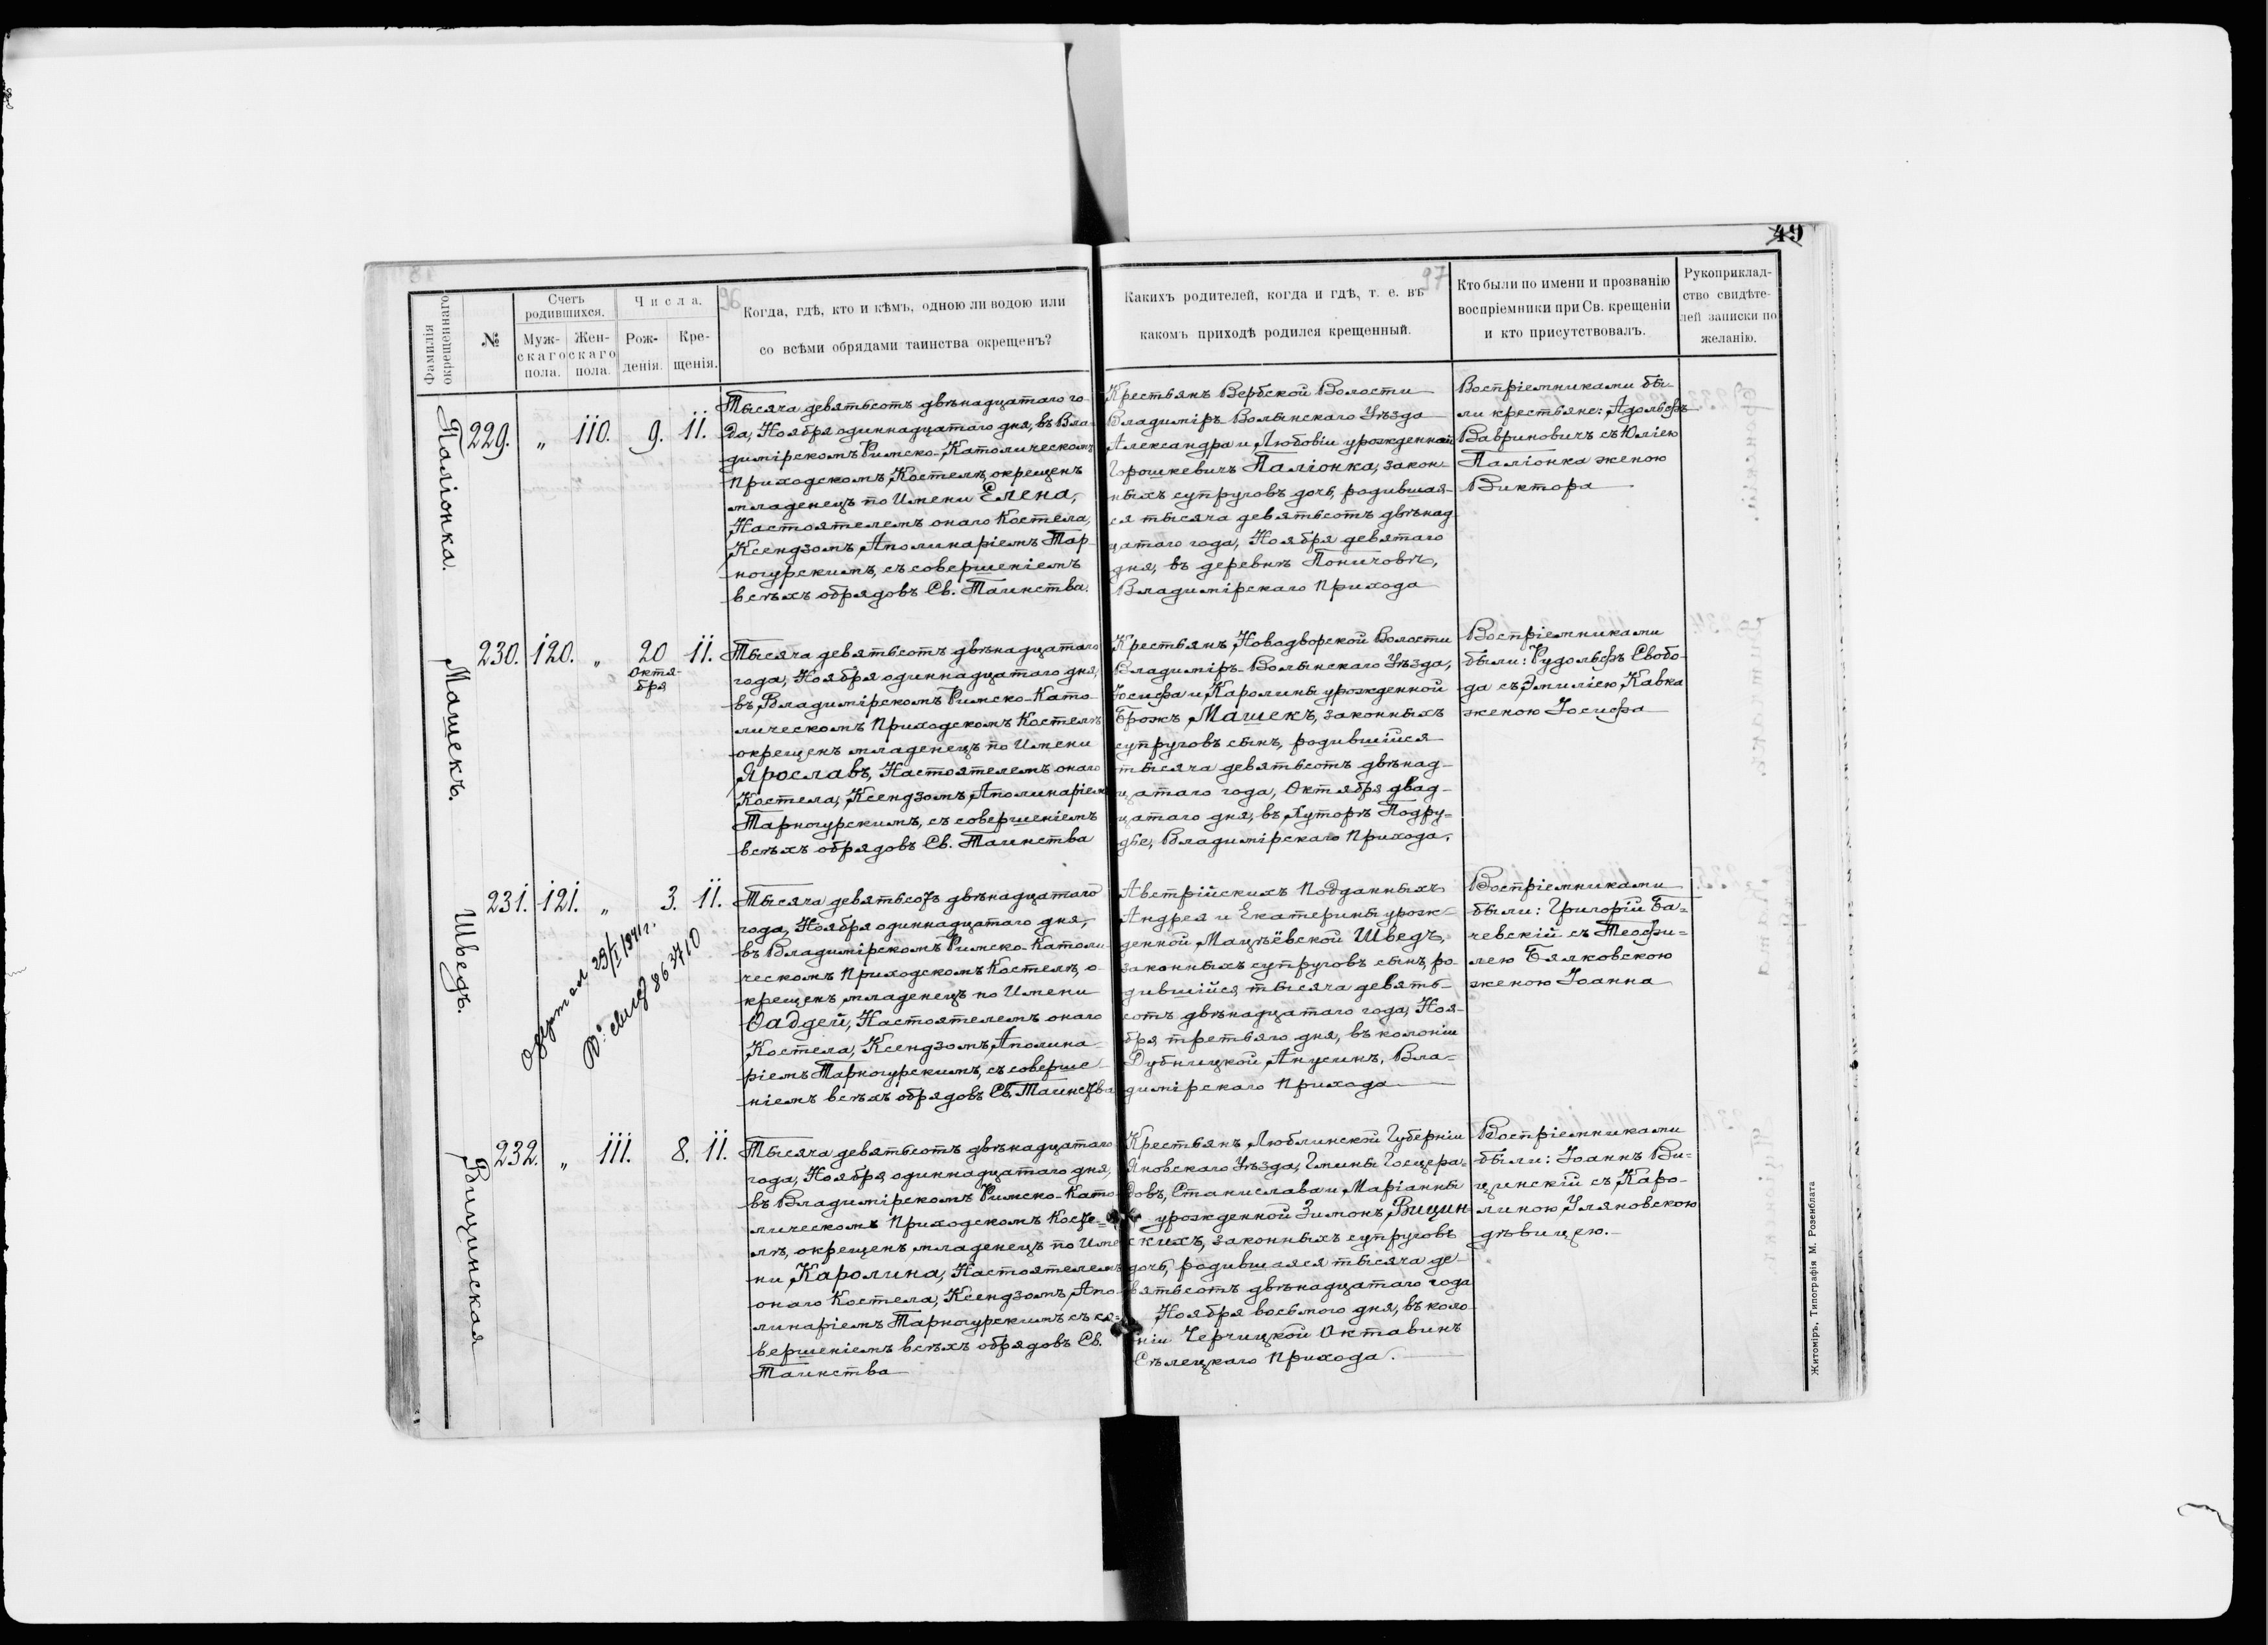 49
96
97
Фамилія окрещеннаго.
№
Счетъ родившихся.
Муж-
скаго
пола.
Жен-
скаго
пола.
Числа.
Рож-
денія.
Кре-
щенія.
Когда, гдѣ, кто и кѣмъ, одною ли водою или
со всѣми обрядами таинства окрещенъ?
Какихъ родителей, когда и гдѣ, т. е. въ
какомъ приходѣ родился крещенный.
Кто были по имени и прозванію
воспріемники при Св. крещеніи
и кто присутствовалъ.
Рукоприклад-
ство свидѣте-
лей записки по
желанію.
Паліонка.
229. „ 110. 9. 11.
Тысяча девятьсотъ двѣнадцатаго го-
да, Ноября одиннадцатаго дня, въ Вла-
димірскомъ Римско-Католическомъ
Приходскомъ Костелѣ, окрещенъ
младенецъ по Имени Елена,
Настоятелемъ онаго Костела,
Ксендзомъ Аполинаріемъ Тар-
ногурскимъ, съ совершеніемъ
всѣхъ обрядовъ Св. Таинства.
Крестьянъ Вербской Волости
Владиміръ-Волынскаго Уѣзда
Александра и Любовіи урожденной
Горошкевичъ Паліонка, закон-
ныхъ супруговъ дочь, родившая-
ся тысяча девятьсотъ двѣнад-
цатаго года, Ноября девятаго
дня, въ деревнѣ Поничовѣ,
Владимірскаго Прихода
Воспріемниками бы-
ли крестьяне: Адольфъ
Вавриновичъ съ Юліею
Паліонка женою
Виктора
Машекъ.
230. 120. „ 20 11.
Октя-
бря
Тысяча девятьсотъ двѣнадцатаго
года, Ноября одиннадцатаго дня,
въ Владимірскомъ Римско-Като-
лическомъ Приходскомъ Костелѣ
окрещенъ младенецъ по Имени
Ярославъ, Настоятелемъ онаго
Костела, Ксендзомъ Аполинаріемъ
Тарногурскимъ, съ совершеніемъ
всѣхъ обрядовъ Св. Таинства
Крестьянъ Новадворской Волости
Владиміръ-Волынскаго Уѣзда,
Іосифа и Каролины урожденной
Брожъ Машекъ, законныхъ
супруговъ сынъ, родившійся
тысяча девятьсотъ двѣнад-
цатаго года, Октября двад-
цатаго дня, въ Хуторѣ Подру-
дье, Владимірскаго Прихода.
Воспріемниками
были: Рудольфъ Свобо-
да съ Эмиліею Кавка
женою Іосифа
Шведъ.
231. 121. „ 3. 11.
23/I 1941 г.
№ свид 863710
Тысяча девятьсотъ двѣнадцатаго
года, Ноября одиннадцатаго дня,
въ Владимірскомъ Римско-Католи-
ческомъ Приходскомъ Костелѣ, о-
крещенъ младенецъ по Имени
Ѳаддей, Настоятелемъ онаго
Костела, Ксендзомъ Аполина-
ріемъ Тарногурскимъ, съ соверше-
ніемъ всѣхъ обрядовъ Св. Таинства
Австрійскихъ Подданныхъ
Андрея и Екатерины урож-
денной Мацѣёвской Шведъ,
законныхъ супруговъ сынъ, ро-
дившійся тысяча девять-
сотъ двѣнадцатаго года, Ноя-
бря третьяго дня, въ колоніи
Дубницкой Анусинъ, Вла-
димірскаго Прихода
Воспріемниками
были: Григорій Ба-
чевскій съ Теофи-
лею Бялковскою
женою Іоанна
Вицинская
232. „ 111. 8. 11.
Тысяча девятьсотъ двѣнадцатаго
года, Ноября одиннадцатаго дня,
въ Владимірскомъ Римско-Като-
лическомъ Приходскомъ Косте-
лѣ, окрещенъ младенецъ по Име-
ни Каролина, Настоятелемъ
онаго Костела, Ксендзомъ Апо-
линаріемъ Тарногурскимъ съ со-
вершеніемъ всѣхъ обрядовъ Св.
Таинства
Крестьянъ Люблинской Губерніи
Яновскаго Уѣзда, Гмины Госцера-
довъ, Станислава и Маріанны
урожденной Зимонъ, Вицин-
скихъ, законныхъ супруговъ
дочь, родившаяся тысяча де-
вятьсотъ двѣнадцатаго года
Ноября восьмого дня, въ коло-
ніи Черчицкой Октавинъ
Сѣлецкаго Прихода.
Воспріемниками
были: Іоаннъ Ви-
цинскій съ Каро-
линою Уляновскою
дѣвицею.
Житоміръ, Типографія М. Розенблата